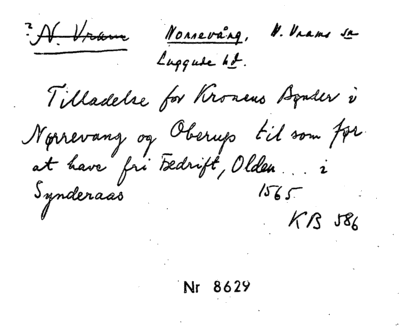 ? N. Vram Norrevång, N. Vrams sn
Luggude hd.
Tilladelse for Kronens Bønder i
Nørrevang og Oberup til som før
at have fri Fædrift, Olden... i
Synderaas 1565
KB 586
Nr 8629